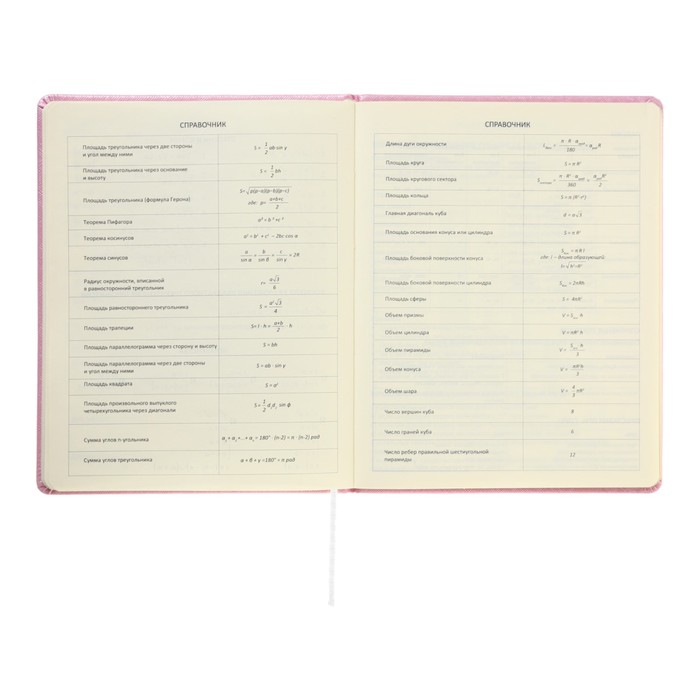 СПРАВОЧНИК
Площадь треугольника через две стороны
и угол между ними
S = 1/2 ab sin γ
Площадь треугольника через основание
и высоту
S = 1/2 bh
Площадь треугольника (формула Герона)
S=√p(p-a)(p-b)(p-c)
где: p= a+b+c/2
Теорема Пифагора
Теорема косинусов
Теорема синусов
a/sin α = b/sin β = c/sin γ = 2R
Радиус окружности, вписанной
в равносторонний треугольник
r= a√3/6
Площадь равностороннего треугольника
S = a²√3/4
Площадь трапеции
a+b/2 · h
Площадь параллелограмма через сторону и высоту
S = bh
Площадь параллелограмма через две стороны
и угол между ними
S = ab · sin γ
Площадь квадрата
S = a²
Площадь произвольного выпуклого
четырехугольника через диагонали
S = 1/2 d₁d₂ sin ф
Сумма углов n-угольника
= 180° · (n-2) = π · (n-2) рад
Сумма углов треугольника
α + β + γ =180° = π рад
СПРАВОЧНИК
Длина дуги окружности
Площадь круга
S = π R²
Площадь кругового сектора
Площадь кольца
S = π (R²-r²)
Главная диагональ куба
d = a√3
Площадь основания конуса или цилиндра
S = π R²
Площадь боковой поверхности конуса
где: l – длина образующей;
Площадь боковой поверхности цилиндра
= 2πRh
Площадь сферы
S = 4πR²
Объем призмы
Объем цилиндра
V = πR² h
Объем пирамиды
Объем конуса
V = πR²h/3
Объем шара
V = 4/3 πR³
Число вершин куба
8
Число граней куба
6
Число ребер правильной шестиугольной
пирамиды
12